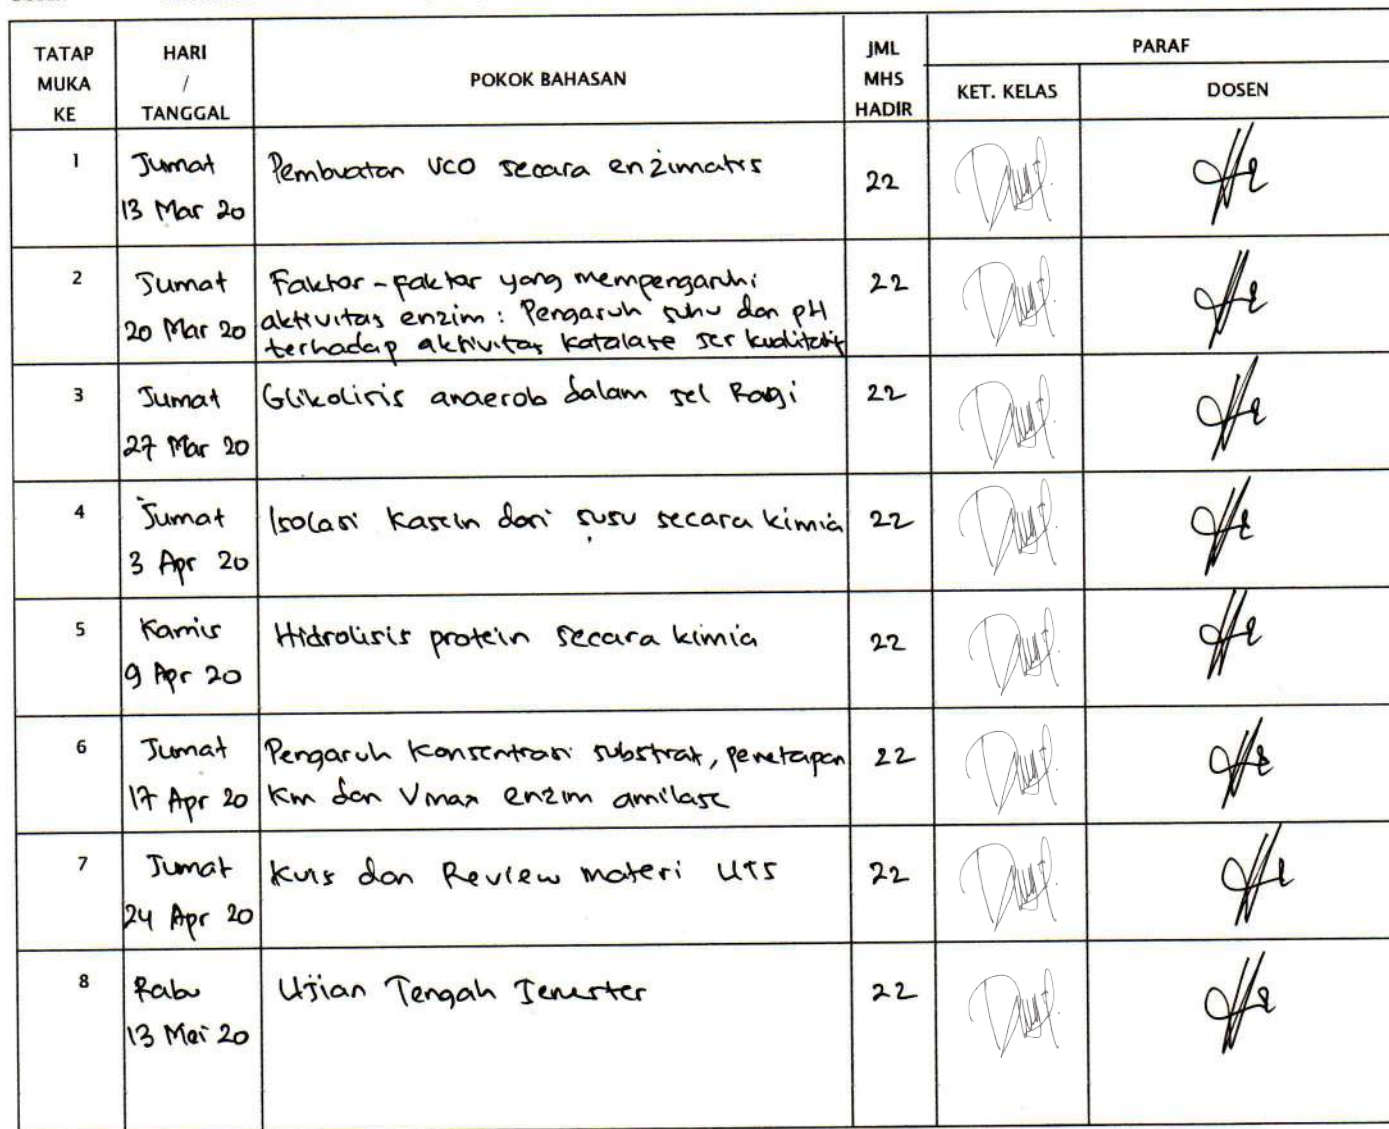 TATAP MUKA KE
HARI / TANGGAL
POKOK BAHASAN
JML MHS HADIR
PARAF
KET. KELAS
DOSEN
1
Jumat
13 Mar 20
Pembuatan VCO secara enzimatis
22
2
Jumat
20 Mar 20
Faktor-faktor yang mempengaruhi
aktivitas enzim : Pengaruh suhu dan pH
terhadap aktivitas katalase scr kualitatif
22
3
Jumat
27 Mar 20
Glikolisis anaerob dalam sel Ragi
22
4
Jumat
3 Apr 20
Isolasi Kasein dari susu secara kimia
22
5
Kamis
9 Apr 20
Hidrolisis protein secara kimia
22
6
Jumat
17 Apr 20
Pengaruh Konsentrasi substrat, penetapan
Km dan Vmax enzim amilase
22
7
Jumat
24 Apr 20
Kuis dan Review materi UTS
22
8
Rabu
13 Mei 20
Ujian Tengah Semester
22